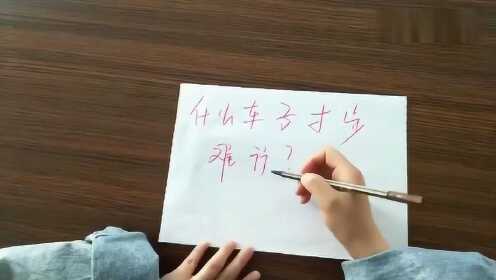 什么车子寸步
难行?